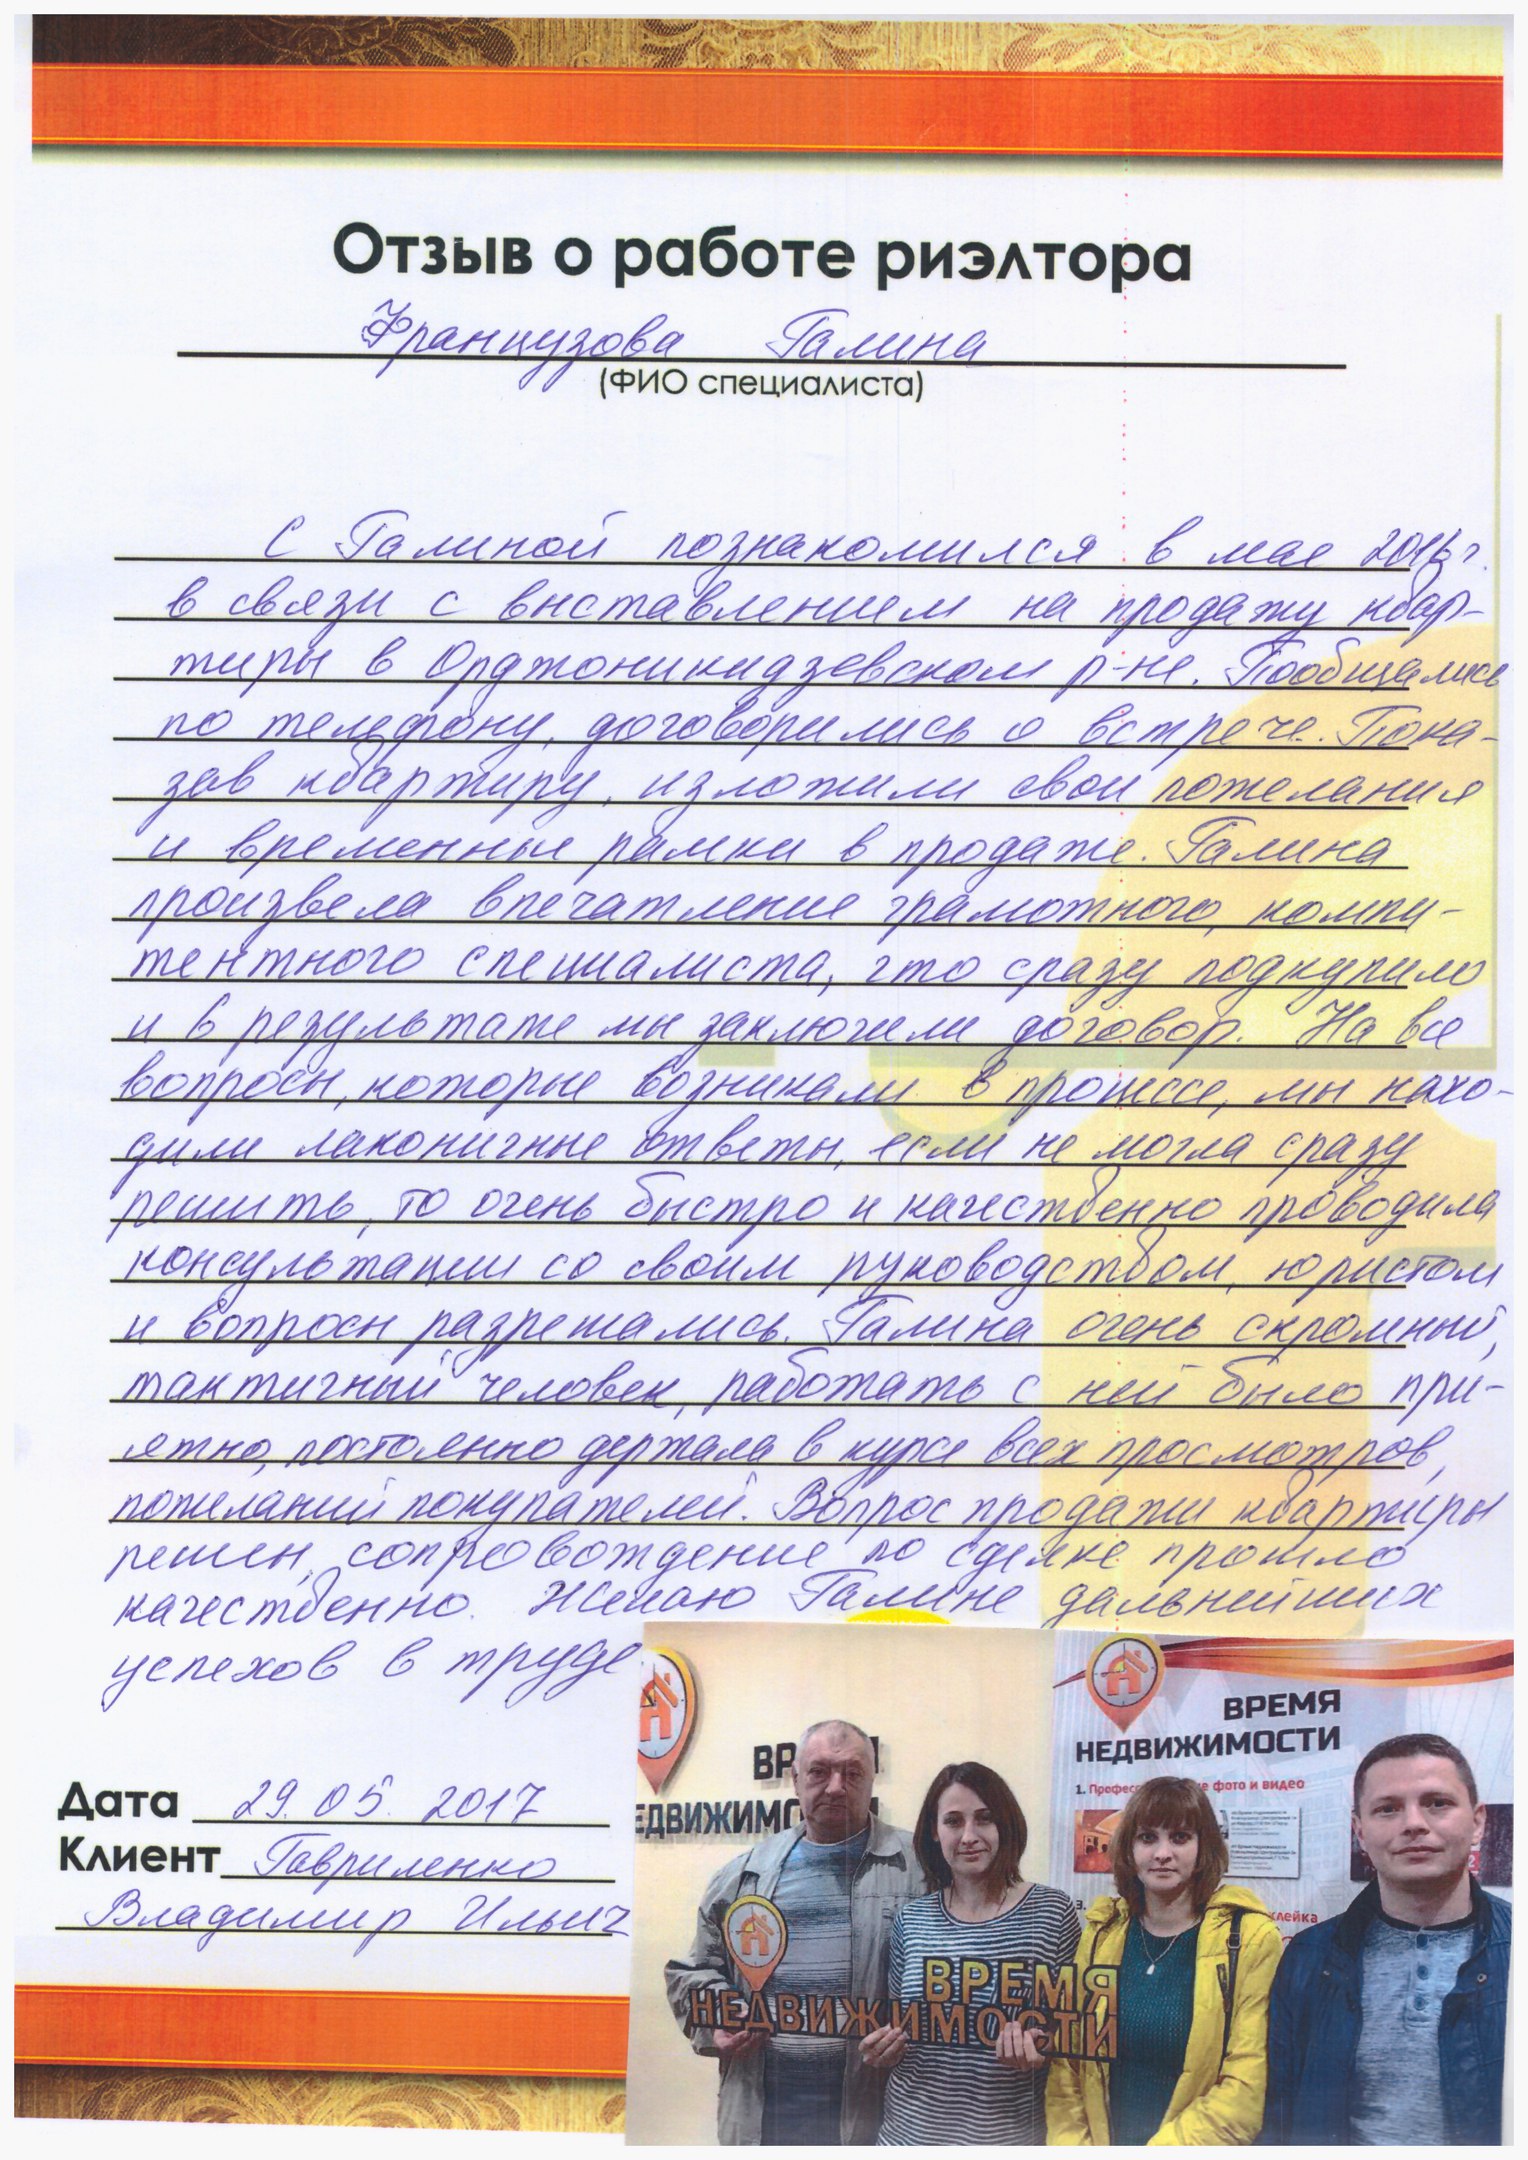 Отзыв о работе риэлтора
Французова Галина
(ФИО специалиста)
С Галиной познакомился в мае
в связи с выставлением на продажу квар-
тиры в Орджоникидзевском р-не. Пообщались
по телефону, договорились о встрече. Пока-
зав квартиру, изложили свои пожелания
и временные рамки в продаже. Галина
произвела впечатление грамотного, компи-
тентного специалиста, что сразу подкупило
и в результате мы заключили договор. На все
вопросы, которые возникали в процессе, мы нахо-
дили лаконичные ответы, если не могла сразу
решить, то очень быстро и качественно проводила
консультации со своим руководством, юристом
и вопросы разрешались. Галина очень скромный,
тактичный человек, работать с ней было при-
ятно, постоянно держала в курсе всех просмотров,
пожеланий покупателей. Вопрос продажи квартиры
решен, сопровождение по сделке прошло
качественно. Желаю Галине дальнейших
успехов в труде.
Дата 29.05.2017
Клиент Гавриленко
Владимир Ильич
ВРЕМЯ
НЕДВИЖИМОСТИ
1. Профессиональные фото и видео
ВРЕМЯ
НЕДВИЖИМОСТИ